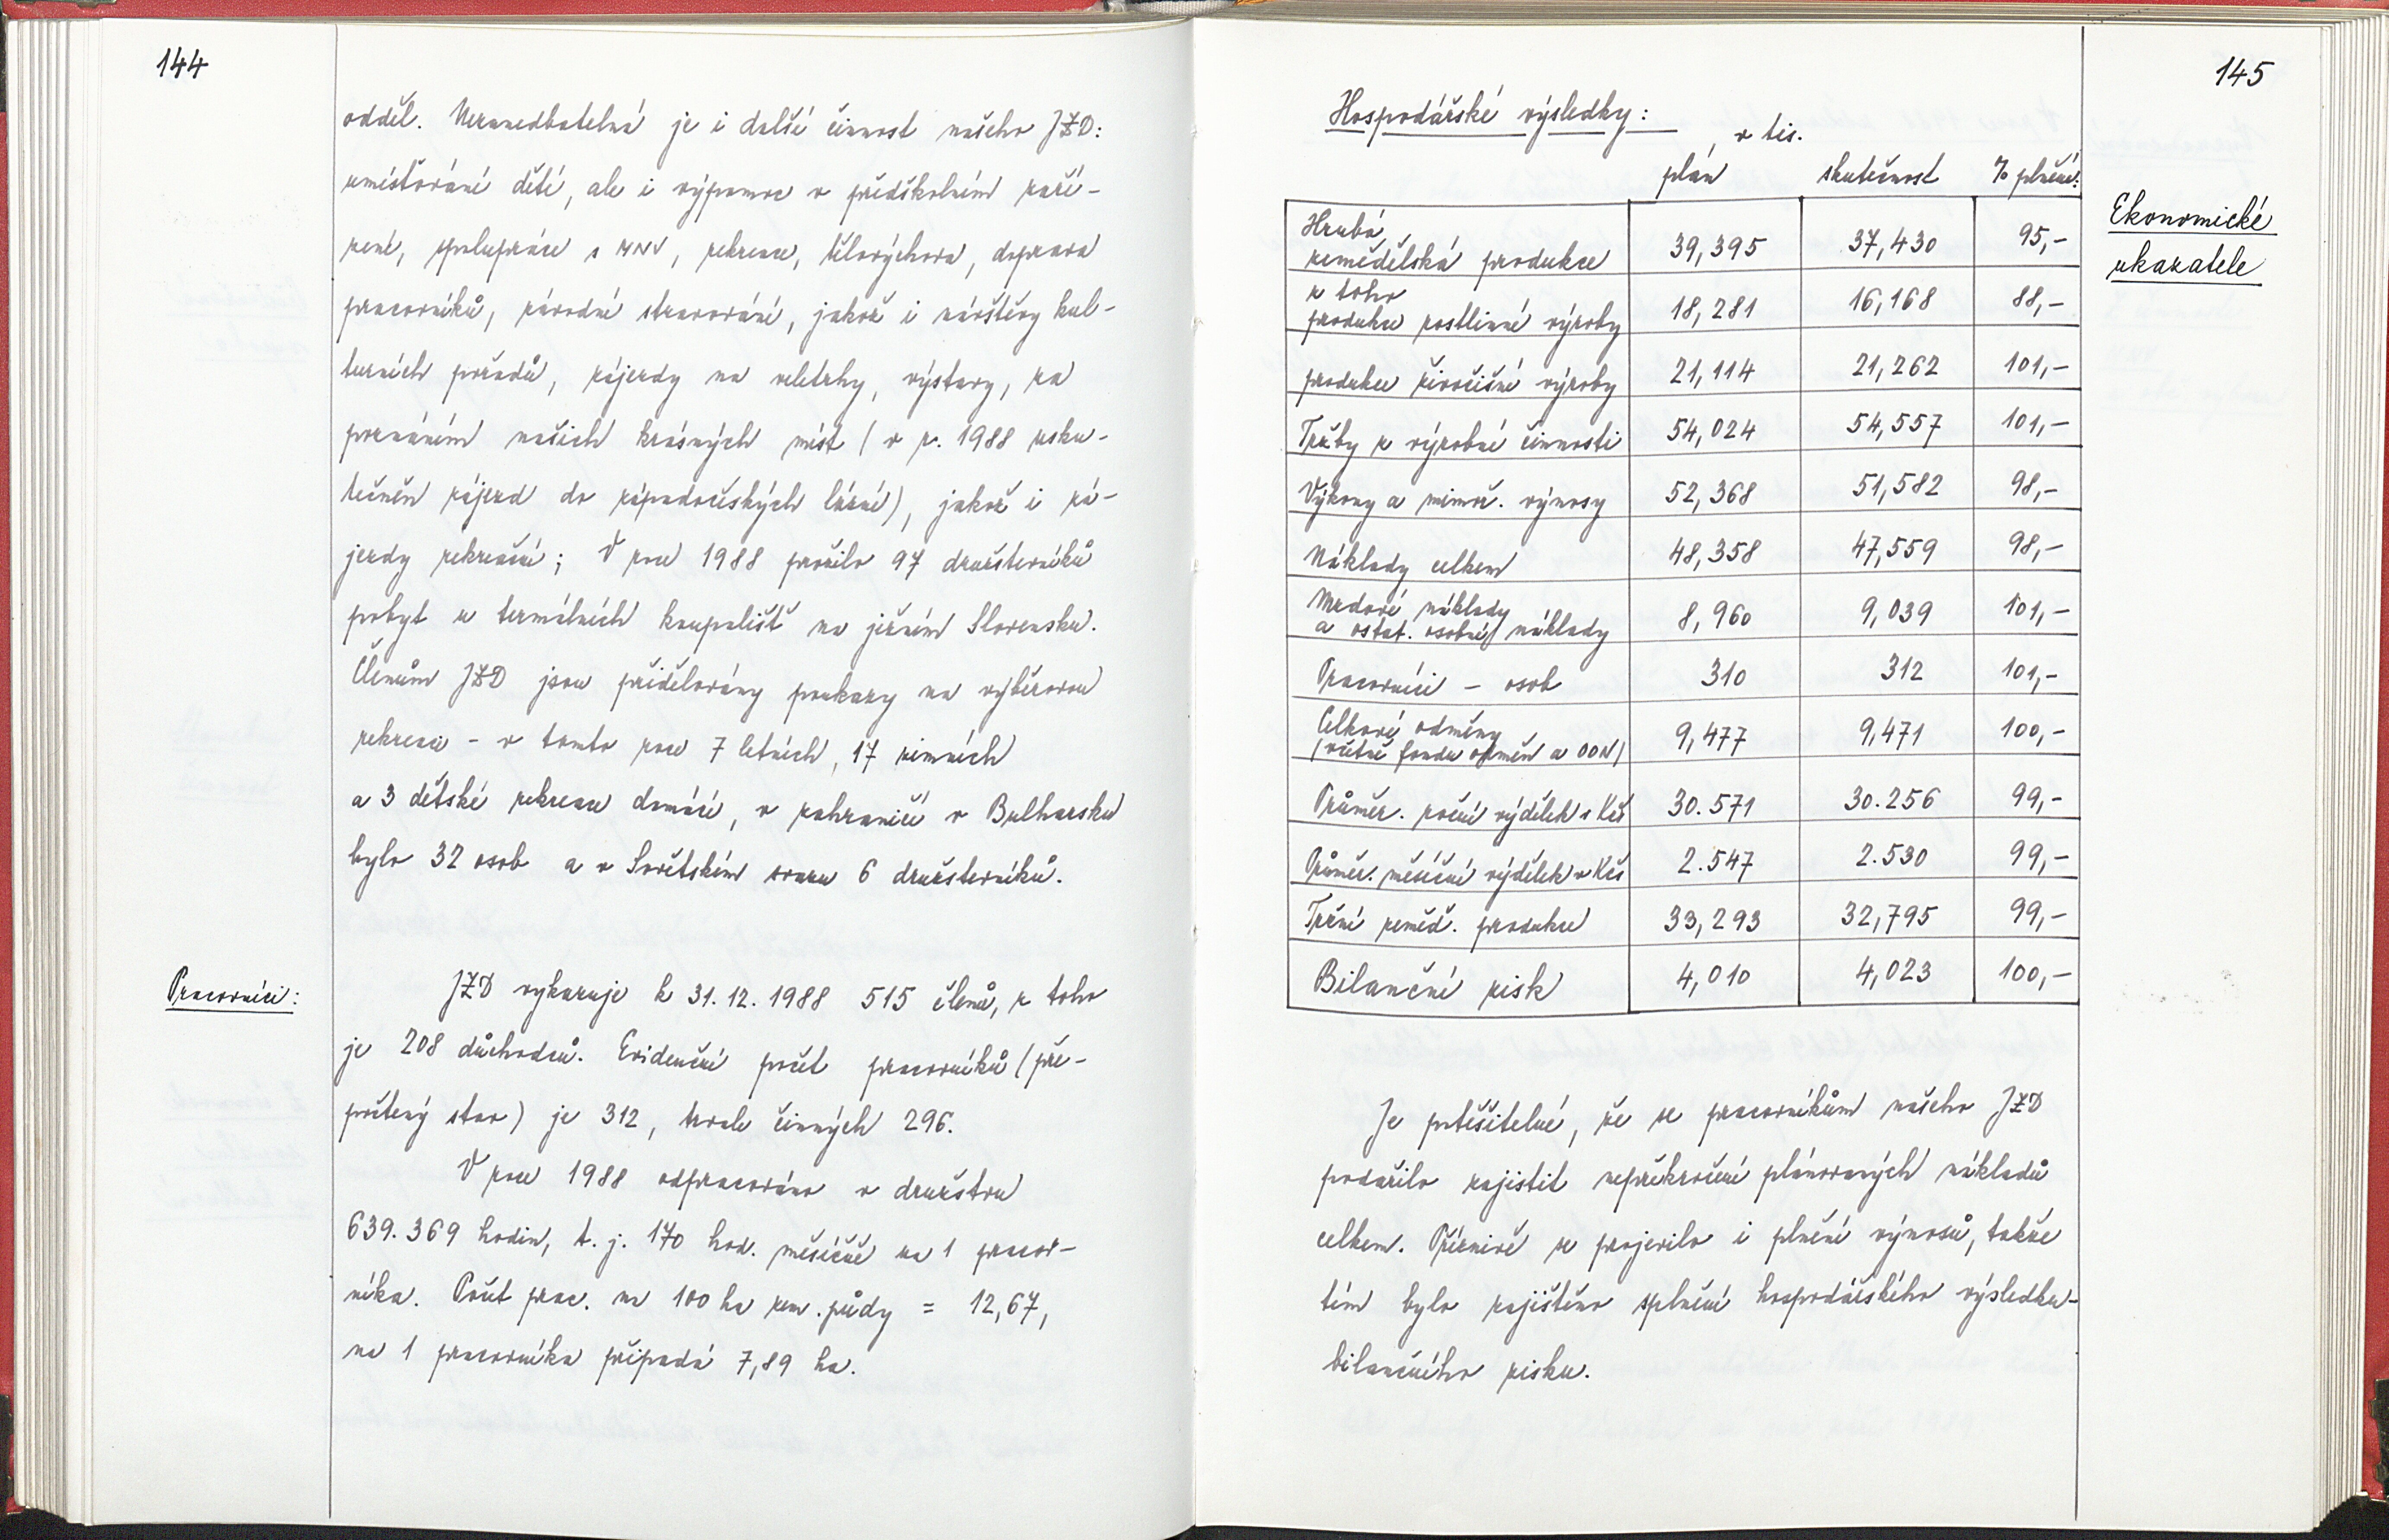 144
odděl. Nezanedbatelná je i další činnost našeho JZD:
umísťování dětí, ale i výpomoc v předškolním zaří-
zení, spolupráce s MNV, rekreace, tělovýchova, doprava
pracovníků, závodní stravování, jakož i návštěvy kul-
turních pořadů, zájezdy na veletrhy, výstavy, za
poznáním našich krásných míst (v r. 1988 usku-
tečněn zájezd do západočeských lázní), jakož i zá-
jezdy rekreační; V roce 1988 prožilo 97 družstevníků
pobyt u termálních koupališť na jižním Slovensku.
Členům JZD jsou přidělovány poukazy na výběrovou
rekreaci - v tomto roce 7 letních, 17 zimních
a 3 dětské rekreace domácí, v zahraničí v Bulharsku
bylo 32 osob a v Sovětském svazu 6 družstevníků.
Pracovníci:
JZD vykazuje k 31. 12. 1988 515 členů, z toho
je 208 důchodců. Evidenční počet pracovníků (pře-
počtený stav) je 312, trvale činných 296.
V roce 1988 odpracováno v družstvu
639.369 hodin, t. j. 170 hod. měsíčně na 1 pracov-
níka. Počet prac. na 100 ha zem. půdy = 12,67,
na 1 pracovníka připadá 7,89 ha.
145
Hospodářské výsledky:
v tis.
plán skutečnost % plnění:
Ekonomické
ukazatele
Hrubá
zemědělská produkce 39,395 37,430 95,-
z toho
produkce rostlinné výroby 18,281 16,168 88,-
produkce živočišné výroby 21,114 21,262 101,-
Tržby z výrobní činnosti 54,024 54,557 101,-
Výkony a mimoř. výnosy 52,368 51,582 98,-
Náklady celkem 48,358 47,559 98,-
Mzdové náklady
a ostat. osobní náklady 8,960 9,039 101,-
Pracovníci - osob 310 312 101,-
Celkové odměny
(včetně fondu odměn a OON) 9,477 9,471 100,-
Průměr. roční výdělek v Kčs 30.571 30.256 99,-
Průměr. měsíční výdělek v Kčs 2.547 2.530 99,-
Tržní zeměd. produkce 33,293 32,795 99,-
Bilanční zisk 4,010 4,023 100,-
Je potěšitelné, že se pracovníkům našeho JZD
podařilo zajistit nepřekročení plánovaných nákladů
celkem. Příznivě se projevilo i plnění výnosů, takže
tím bylo zajištěno splnění hospodářského výsledku-
bilančního zisku.